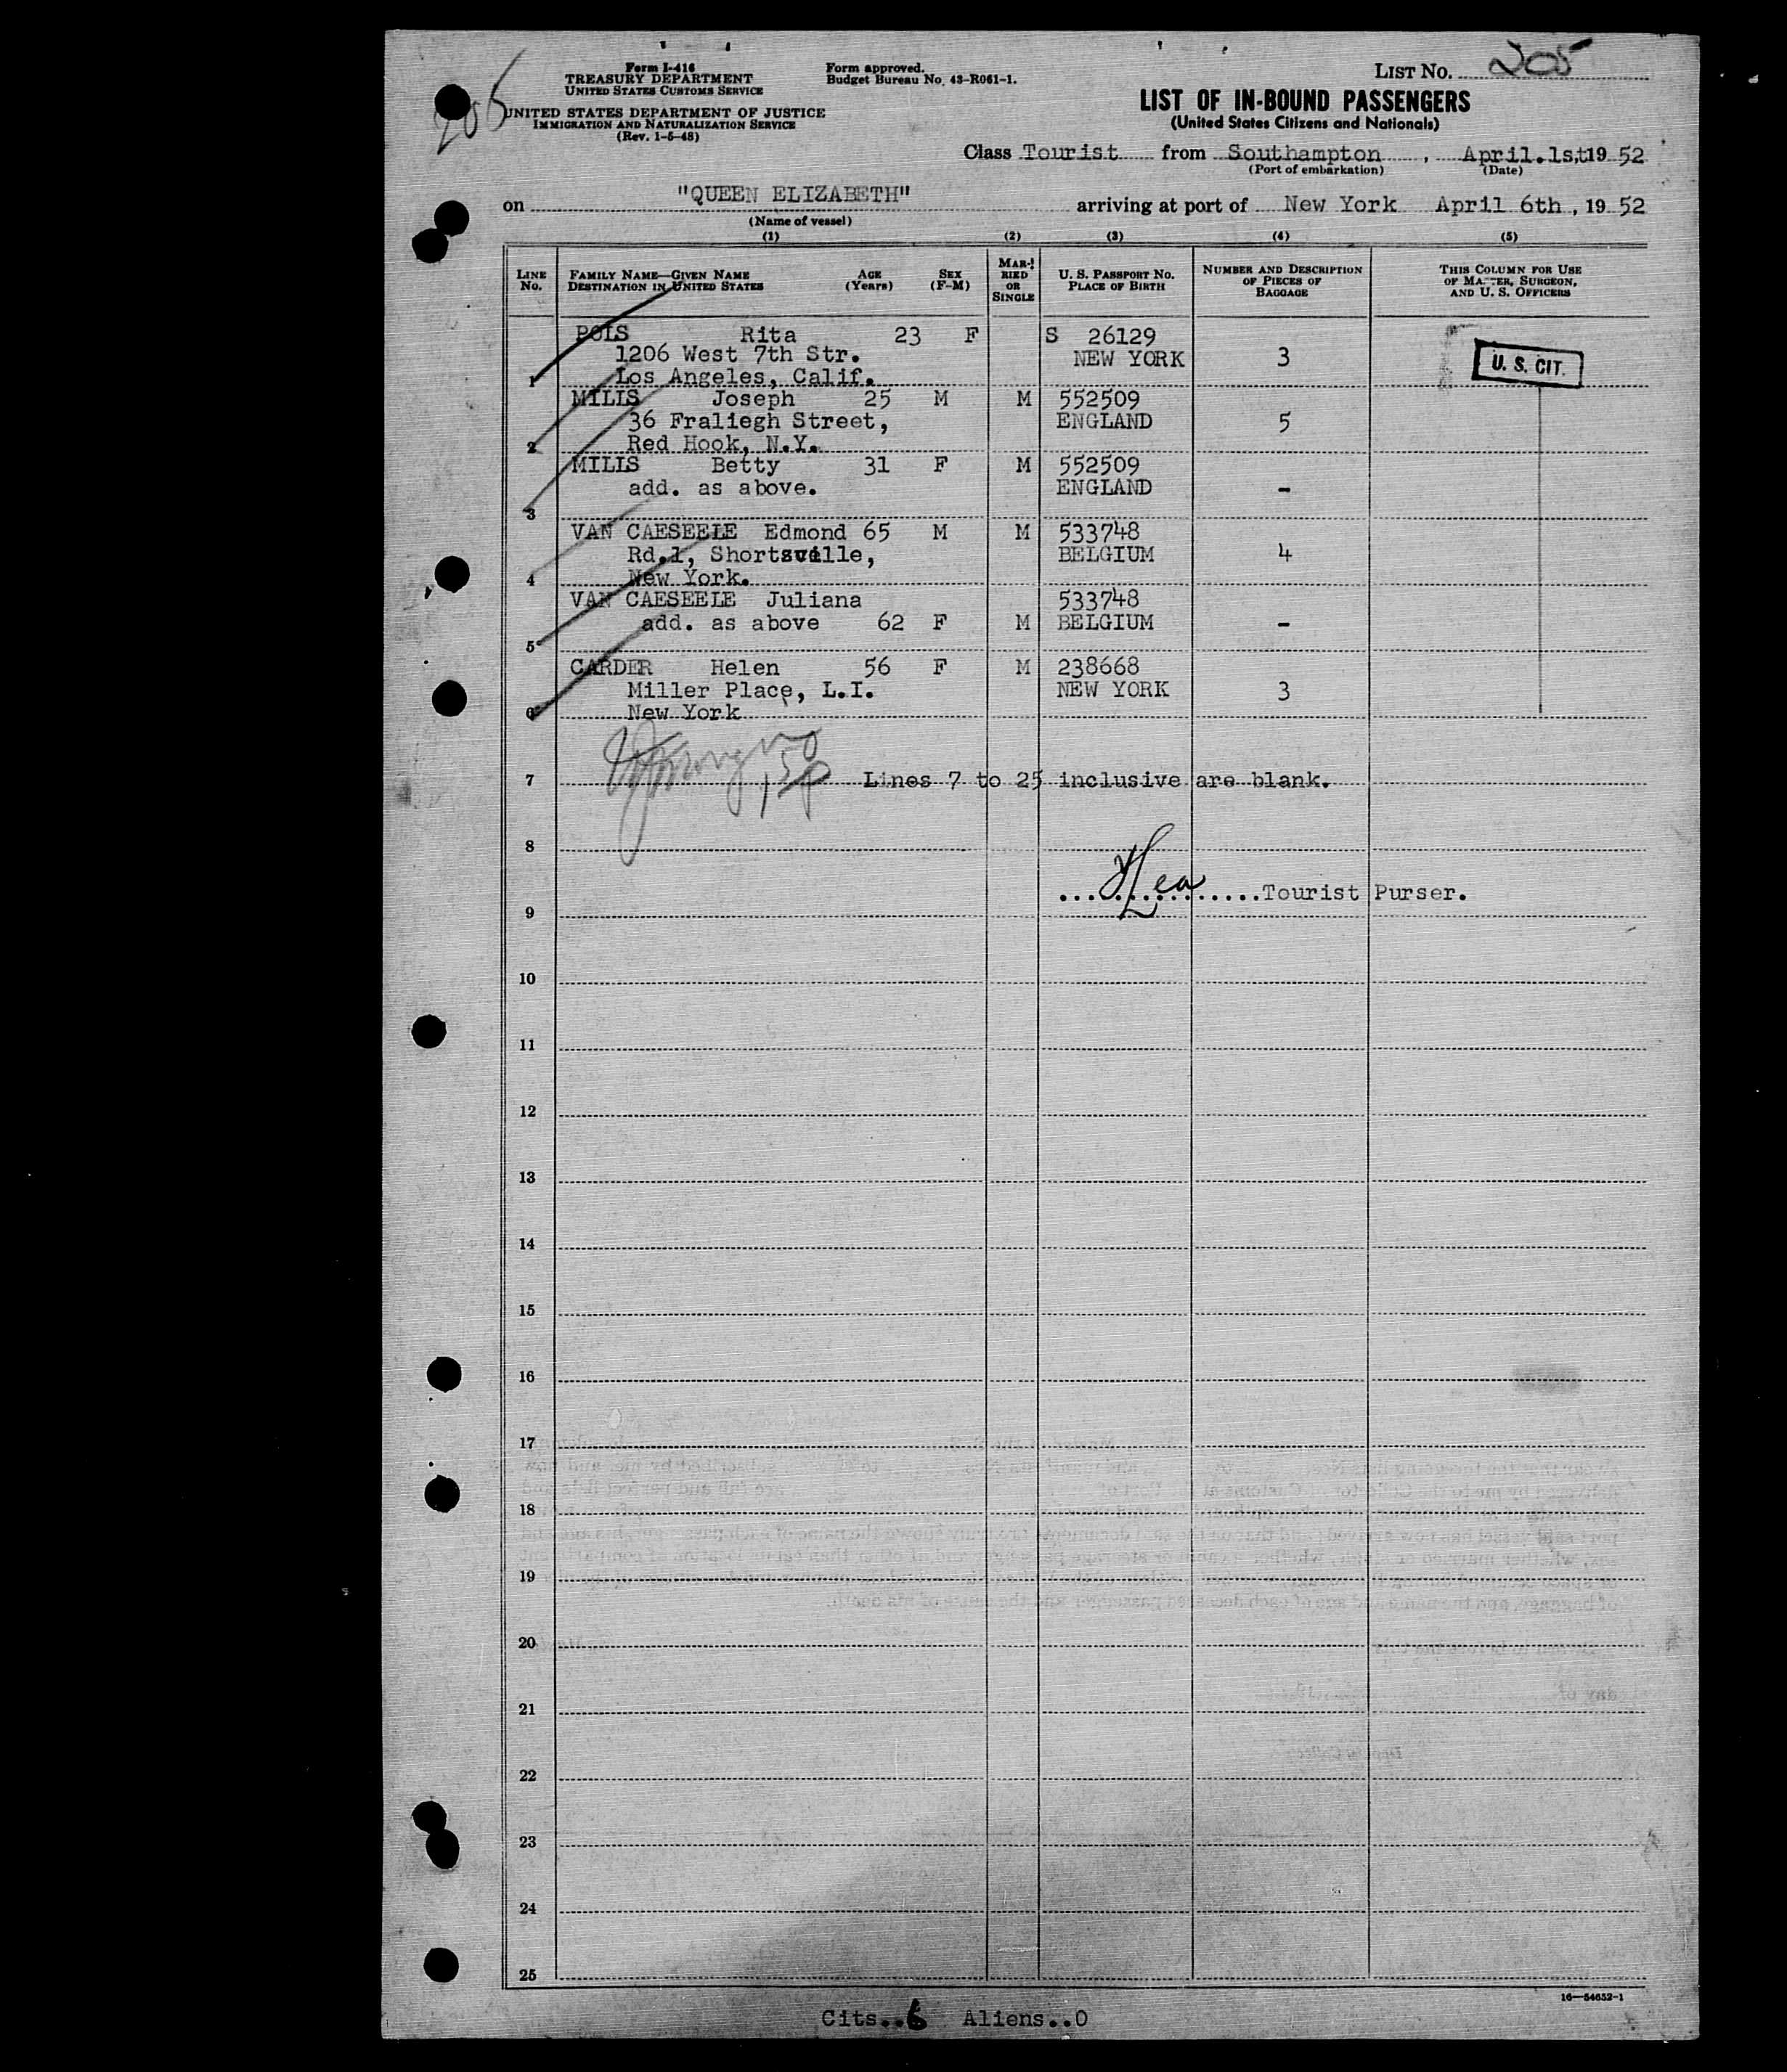 205
Form I-416
TREASURY DEPARTMENT
UNITED STATES CUSTOMS SERVICE
UNITED STATES DEPARTMENT OF JUSTICE
IMMIGRATION AND NATURALIZATION SERVICE
(Rev. 1-5-48)
Form approved.
Budget Bureau No. 43-R061-1.
LIST NO. 205
LIST OF IN-BOUND PASSENGERS
(United States Citizens and Nationals)
Class Tourist from Southampton, April.1st,19 52
(Port of embarkation) (Date)
on "QUEEN ELIZABETH" arriving at port of New York April 6th, 19 52
(Name of vessel)
(1) (2) (3) (4) (5)
LINE NO. FAMILY NAME—GIVEN NAME DESTINATION IN UNITED STATES AGE (Years) SEX (F-M) MARRIED OR SINGLE U. S. PASSPORT NO. PLACE OF BIRTH NUMBER AND DESCRIPTION OF PIECES OF BAGGAGE THIS COLUMN FOR USE OF MASTER, SURGEON, AND U. S. OFFICERS
POLS Rita 23 F S 26129
1206 West 7th Str. NEW YORK 3 U. S. CIT.
1 Los Angeles, Calif.
MILIS Joseph 25 M M 552509
36 Fraliegh Street, ENGLAND 5
2 Red Hook, N.Y.
MILIS Betty 31 F M 552509
add. as above. ENGLAND -
3
VAN CAESEELE Edmond 65 M M 533748
Rd.1, Shortsville, BELGIUM 4
4 New York.
VAN CAESEELE Juliana 533748
add. as above 62 F M BELGIUM -
5
CARDER Helen 56 F M 238668
Miller Place, L.I. NEW YORK 3
6 New York
7 Lines 7 to 25 inclusive are blank.
8
...HLea......Tourist Purser.
9
10
11
12
13
14
15
16
17
18
19
20
21
22
23
24
25
16—54652-1
Cits..6 Aliens..0